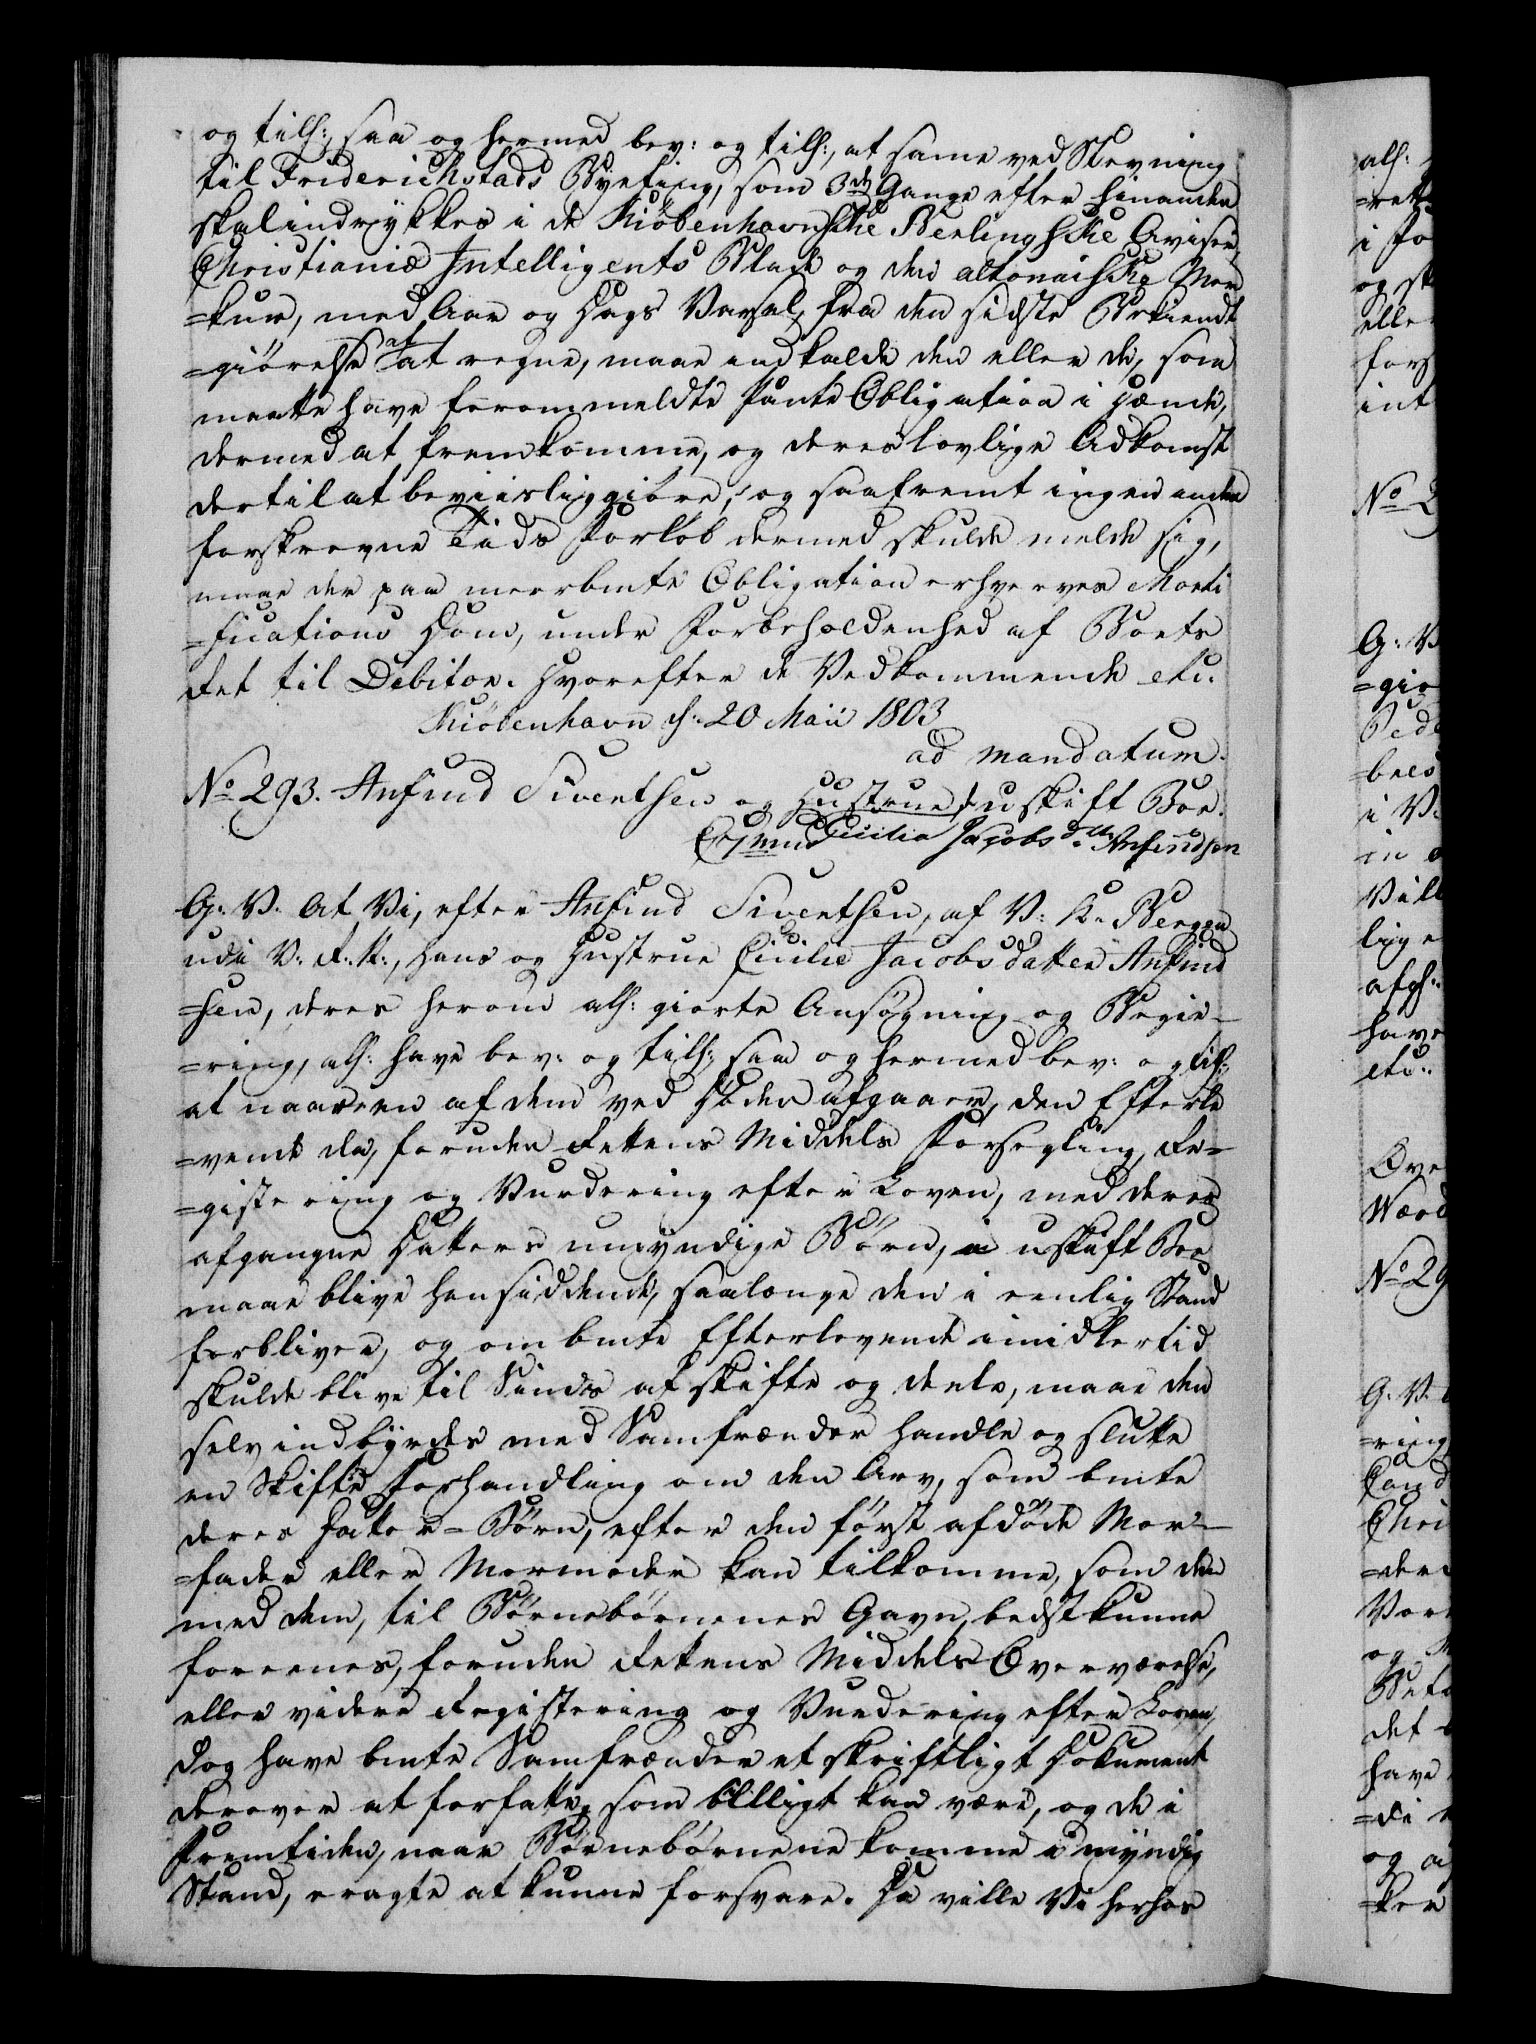 og till:, saa og hermed bev: og till:, at samme ved Stevning
til Friderichstads Byeting, som 3de Gange efter hinanden
skal indrykkes i de Kiøbenhavnske Berlingske Aviser,
Christianiæ Intelligents Blade og den altonaiske Mer
=kur, med Aar og Dags Varsel, fra den sidste Bekiendt
=giørelse af at regne, maae indkalde den eller de, som
maatte have forommeldte Pante Obligation i Hænde,
dermed at fremkomme, og deres lovlige Adkomst
dertil at beviisliggiøre, og saafremt ingen inden
forskrevne Tids Forløb dermed skulde melde sig,
maae der paa meerbmte Obligation erhverves Morti
=fications Dom, under Forbeholdenhed af Boets
Ret til Debitor. Hvorefter de Vedkommende etc.
Kiøbenhavn d: 20 Maii 1803
ad mandatum.
No 293. Anfind Siventsen og Hustrue uskift Boe.
Cicilia Jacobsdtr Anfindsen
G: V: At Vi, efter Anfind Siventsen, af V: K: Bergen
udi V: R: N:, hans og Hustrue Cicilie Jacobsdatter Anfind
=sen, deres herom all: giorte Ansøgning og Begie-
=ring, all: have bev: og till:, saa og hermed bev: og till:,
at naar een af dem ved Døden afgaaer, den Efterle
=vende da, foruden Rettens Middels Forsegling, Re=
=gistering og Vurdering efter Loven, med deres
afgangne Datters umyndige Børn, i uskift Boe
maae blive hensiddende, saalænge den i eenlig Stand
forbliver, og om bmte Efterlevende imidlertid
skulde blive til Sinds at skifte og deele, maae den
selv indbyrdes med Samfrænder handle og slutte
en Skifte Forhandling om den Arv, som bmte
deres Datter=Børn, efter den først afdøde Mor-
=fader eller Mormoder kan tilkomme, som den
med dem, til Børnebørnenes Gavn, bedst kunne
foreenes, foruden Rettens Middels Overværelse,
eller videre Registering og Vurdering efter Loven,
dog have bmte Samfrænder et skriftligt Dokument
derover at forfatte, som billigt kan være, og de i
Fremtiden, naar Børnebørnene komme i myndig
Stand, eragte at kunne forsvare. Da ville Vi herhos